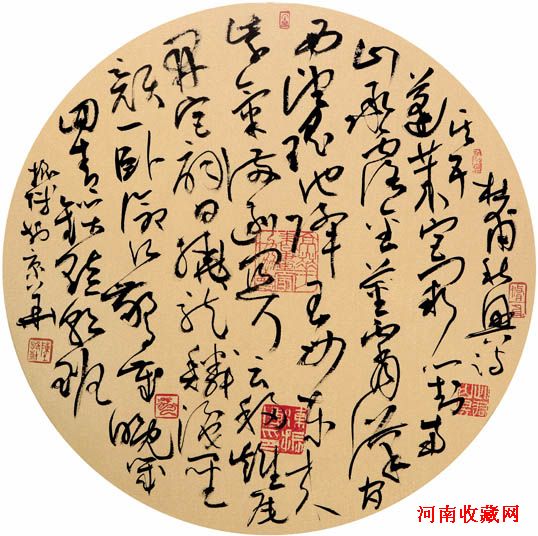 杜甫秋兴诗
其五
蓬莱宫阙对南
山承露金茎霄汉间
西望瑶池降王母东来
紫气满函关云移雉尾
开宫扇日绕龙鳞识圣
颜一卧沧江惊岁晚几
回青琐点朝班
河南收藏网